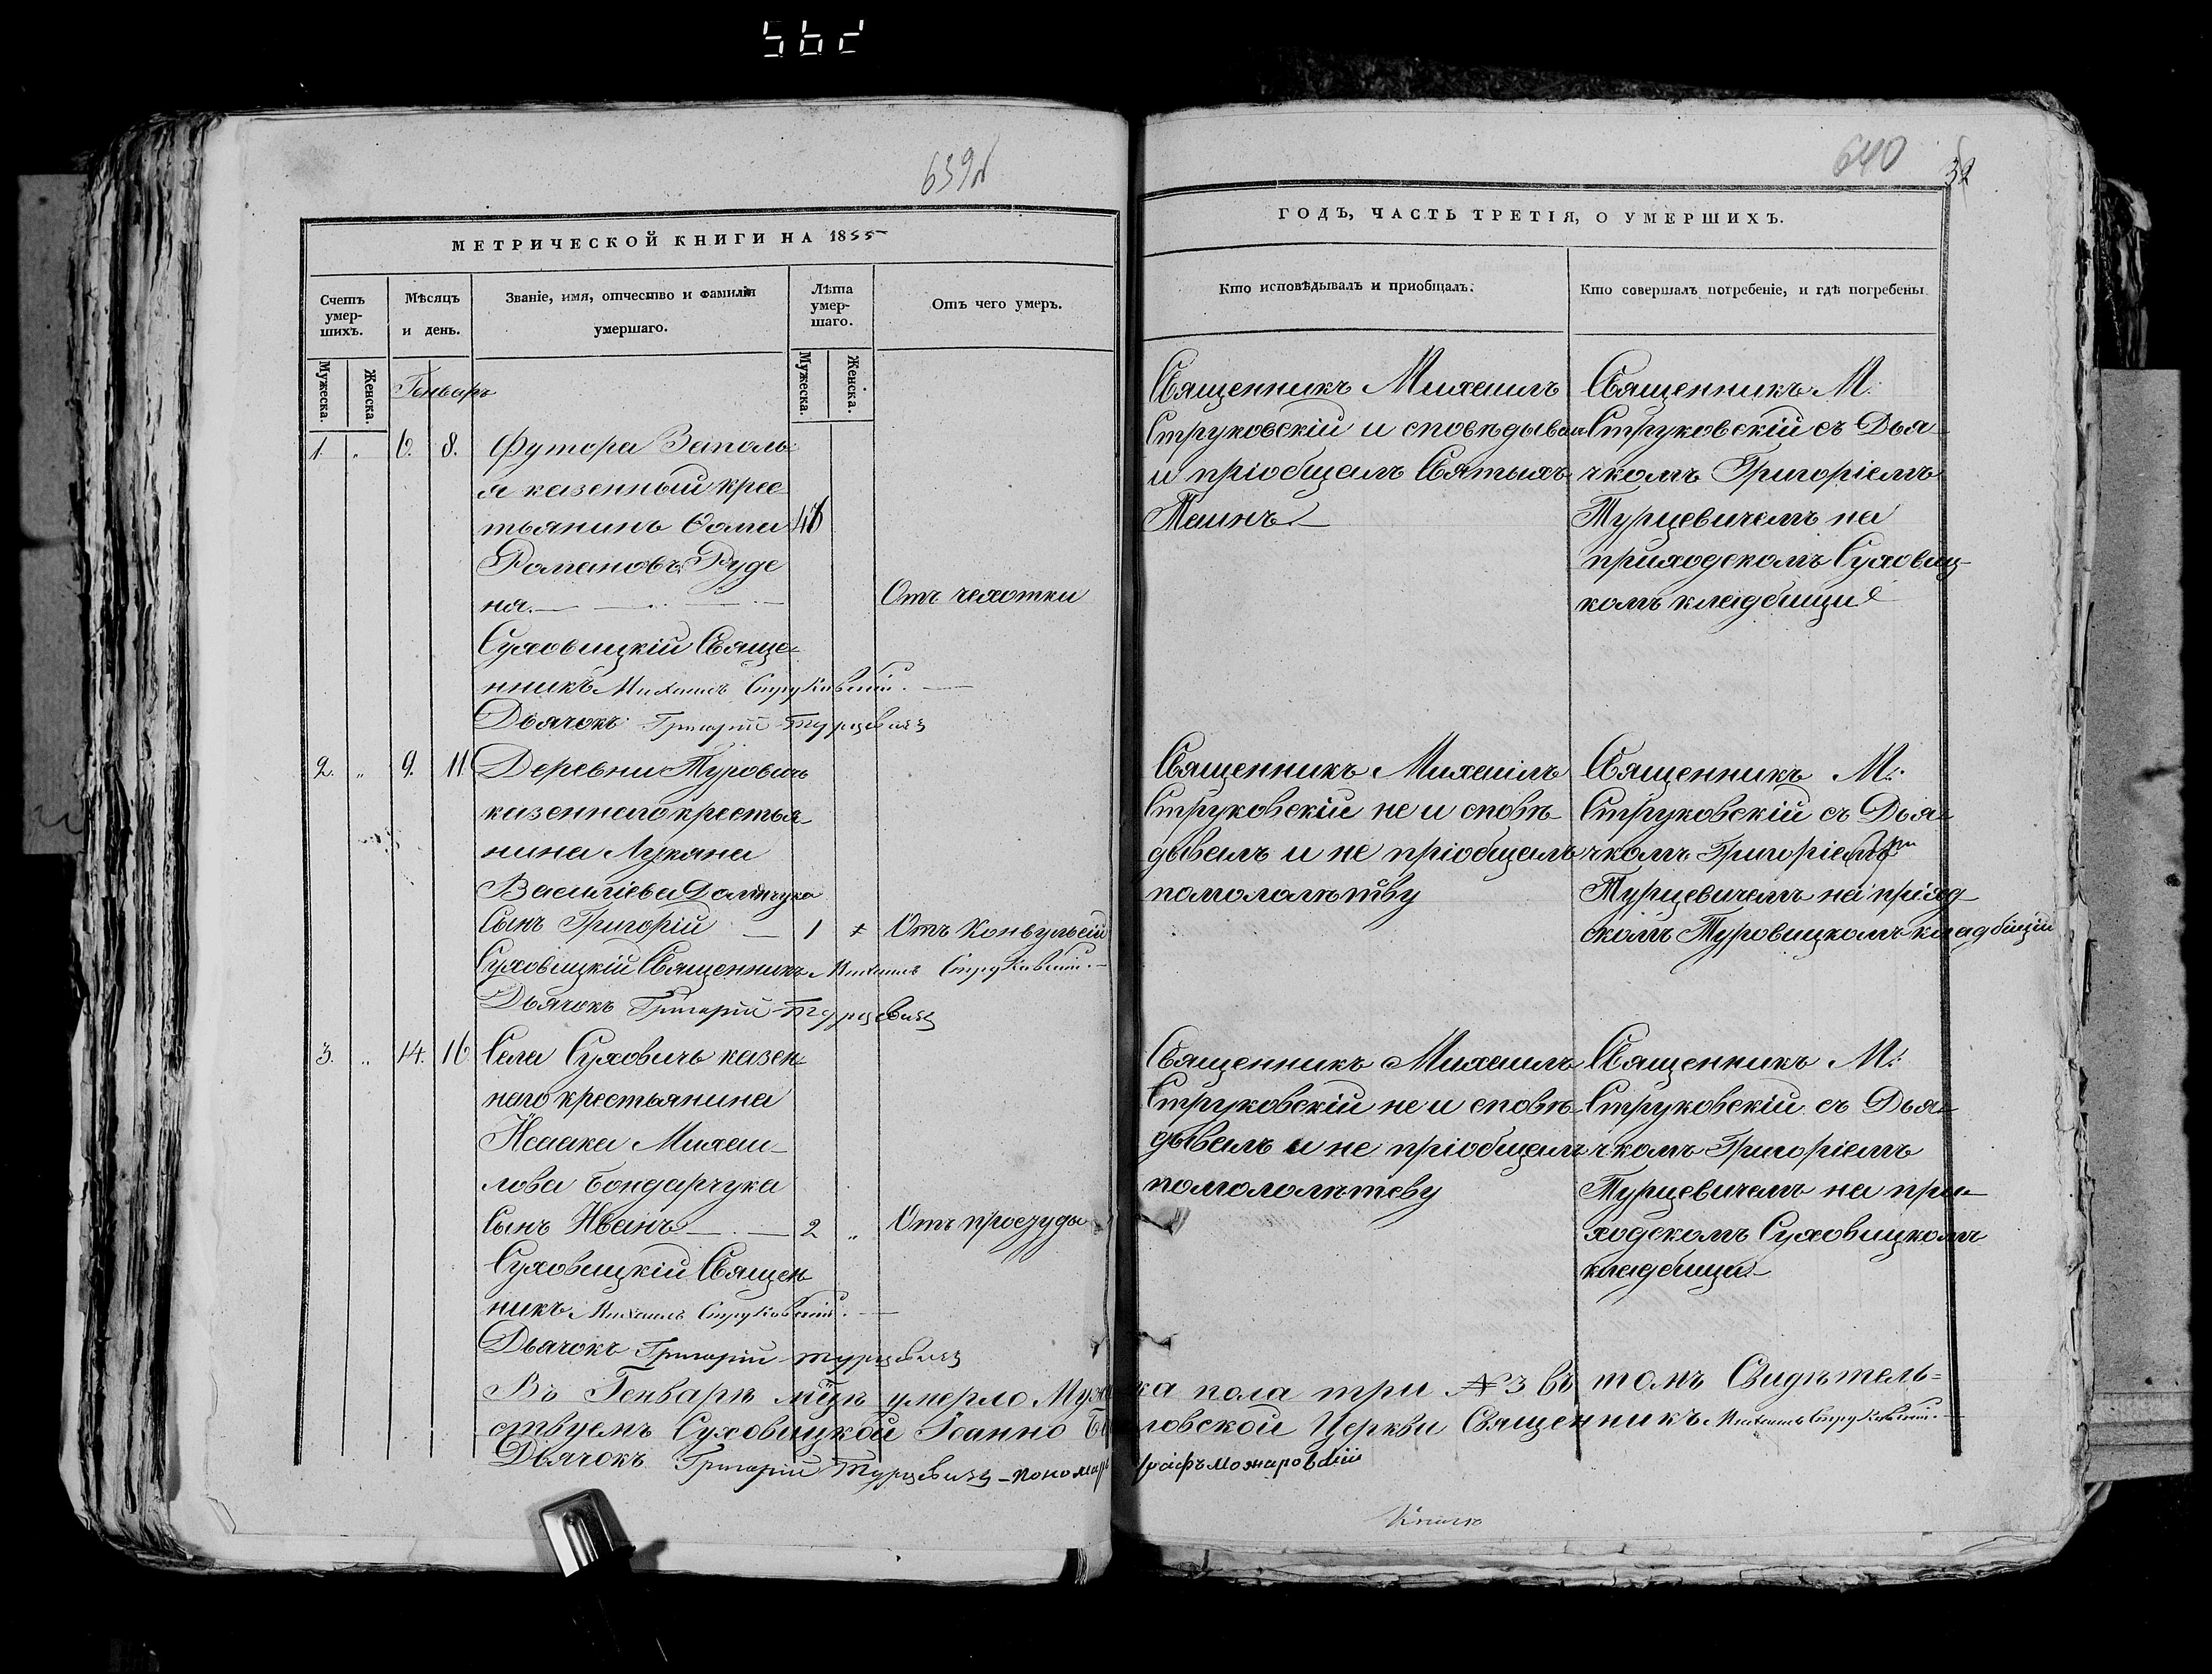 562
639
640
32
МЕТРИЧЕСКОЙ КНИГИ НА 1855
ГОДЪ, ЧАСТЬ ТРЕТІЯ, О УМЕРШИХЪ.
Счетъ умер-шихъ.
Мужеска.
Женска.
Мѣсяцъ и день.
Званіе, имя, отчество и фамилія умершаго.
Лѣта умер-шаго.
Мужеска.
Женска.
Отъ чего умеръ.
Кто исповѣдывалъ и пріобщалъ.
Кто совершалъ погребеніе, и гдѣ погребены
Генварь
1. „ 6. 8. Футора Заполь-
я казенный крес
тьянинъ Ѳома 48
Романовъ Руде
ня.
Отъ чахотки
Суховицкій Свяще-
нникъ Михаилъ Струковскій.
Дьячокъ Григорій Турцевичъ
Священникъ Михаилъ
Струковскій и сповѣдывал
и пріобщалъ Святыхъ
Таинъ
Священникъ М:
Струковскій съ Дья-
чкомъ Григоріемъ
Турцевичемъ на
приходскомъ Суховиц-
комъ кладбищи
2. „ 9. 11. Деревни Туровичь
казеннаго крестья-
нина Лукяна
Василіева
сынъ Григорій — 1 Отъ Конвульсіи
Суховицкій Священникъ Михаилъ Струковскій.
Дьячокъ Григорій Турцевичъ
Священникъ Михаилъ
Струковскій не и сповѣ-
дывалъ и не пріобщалъ
помололѣтву
Священникъ М:
Струковскій съ Дья-
чкомъ Григоріемъ
Турцевичемъ на приход
скомъ Туровицкомъ кладбищи
3. „ 14. 16 Села Суховичь казен-
наго крестьянина
Исаака Михаи-
лова Бондарчука
сынъ Иванъ — 2 „ Отъ простуды
Суховицкій Священ
никъ Михаилъ Струковскій.
Дьачокъ Григорій Турцевичъ
Священникъ Михаилъ
Струковскій не и сповѣ-
дывалъ и не пріобщалъ
помололѣтеву
Священникъ М:
Струковскій съ Дья-
чкомъ Григоріемъ
Турцевичемъ на при-
ходскомъ Суховицкомъ
кладбищи
Въ Генварѣ мцѣ умерло Муж ка пола три № 3 въ томъ Свидѣтель-
ствуемъ Суховицкой Іоанно Б ловской Церкви Священникъ Михаилъ Струковскій.
Дьячокъ Григорій Турцевичъ - пономарь Можаровскій